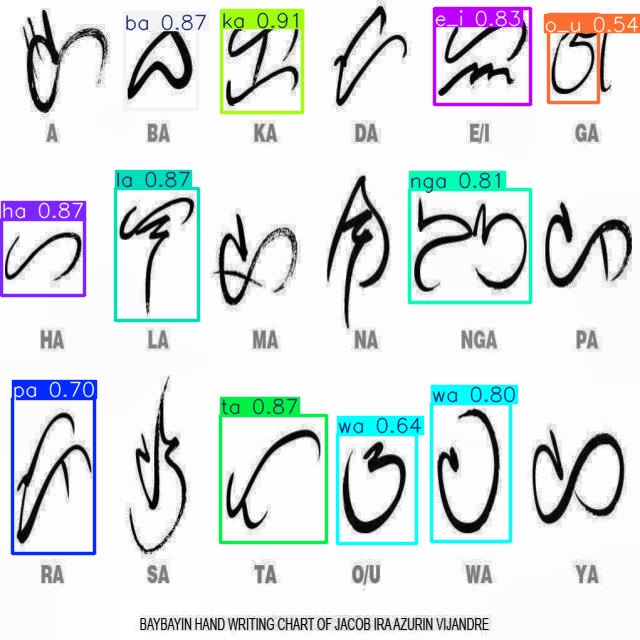 ba 0.87 ka 0.91 e_i 0.83 o_u 0.54
ᜀ ᜊ ᜃ ᜇ ᜁ ᜄ
A BA KA DA E/I GA
ha 0.87 la 0.87 nga 0.81
ᜑ ᜎ ᜋ ᜈ ᜅ ᜉ
HA LA MA NA NGA PA
pa 0.70 ta 0.87 wa 0.64 wa 0.80
ᜍ ᜐ ᜆ ᜂ ᜏ ᜌ
RA SA TA O/U WA YA
BAYBAYIN HAND WRITING CHART OF JACOB IRA AZURIN VIJANDRE